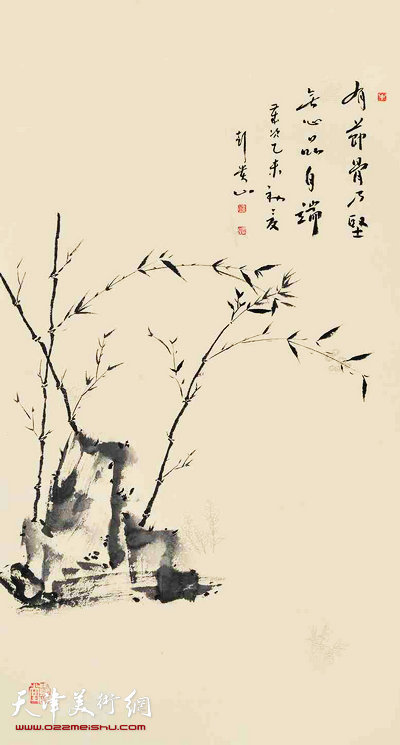 有節骨乃堅
無心品自端
歲次乙未初夏
彭英心
天津美術網
www.022meishu.com